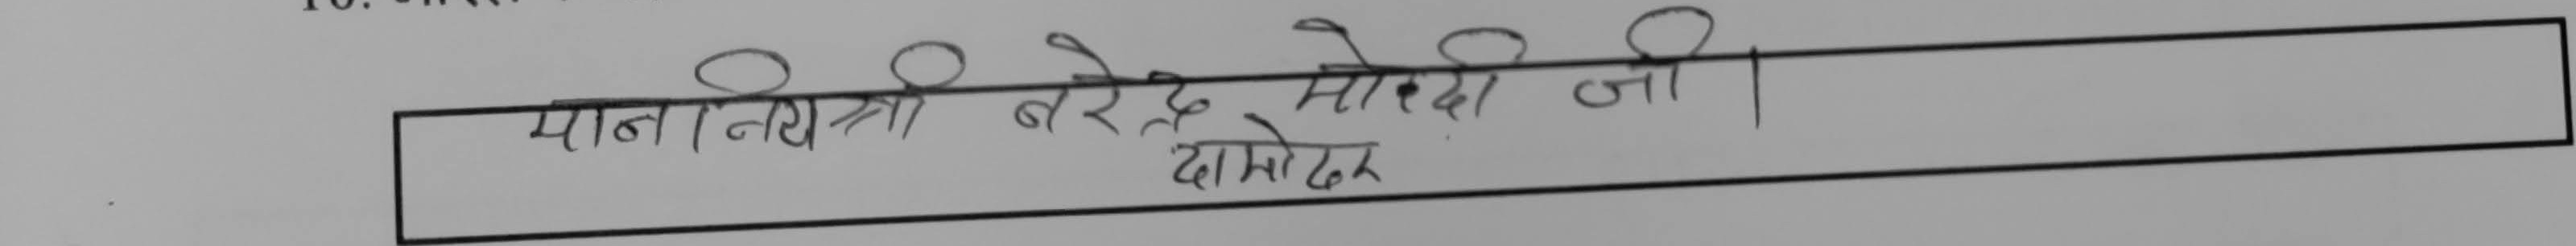 माननियश्री नरेन्द्र मोदी जी।
दामोदर